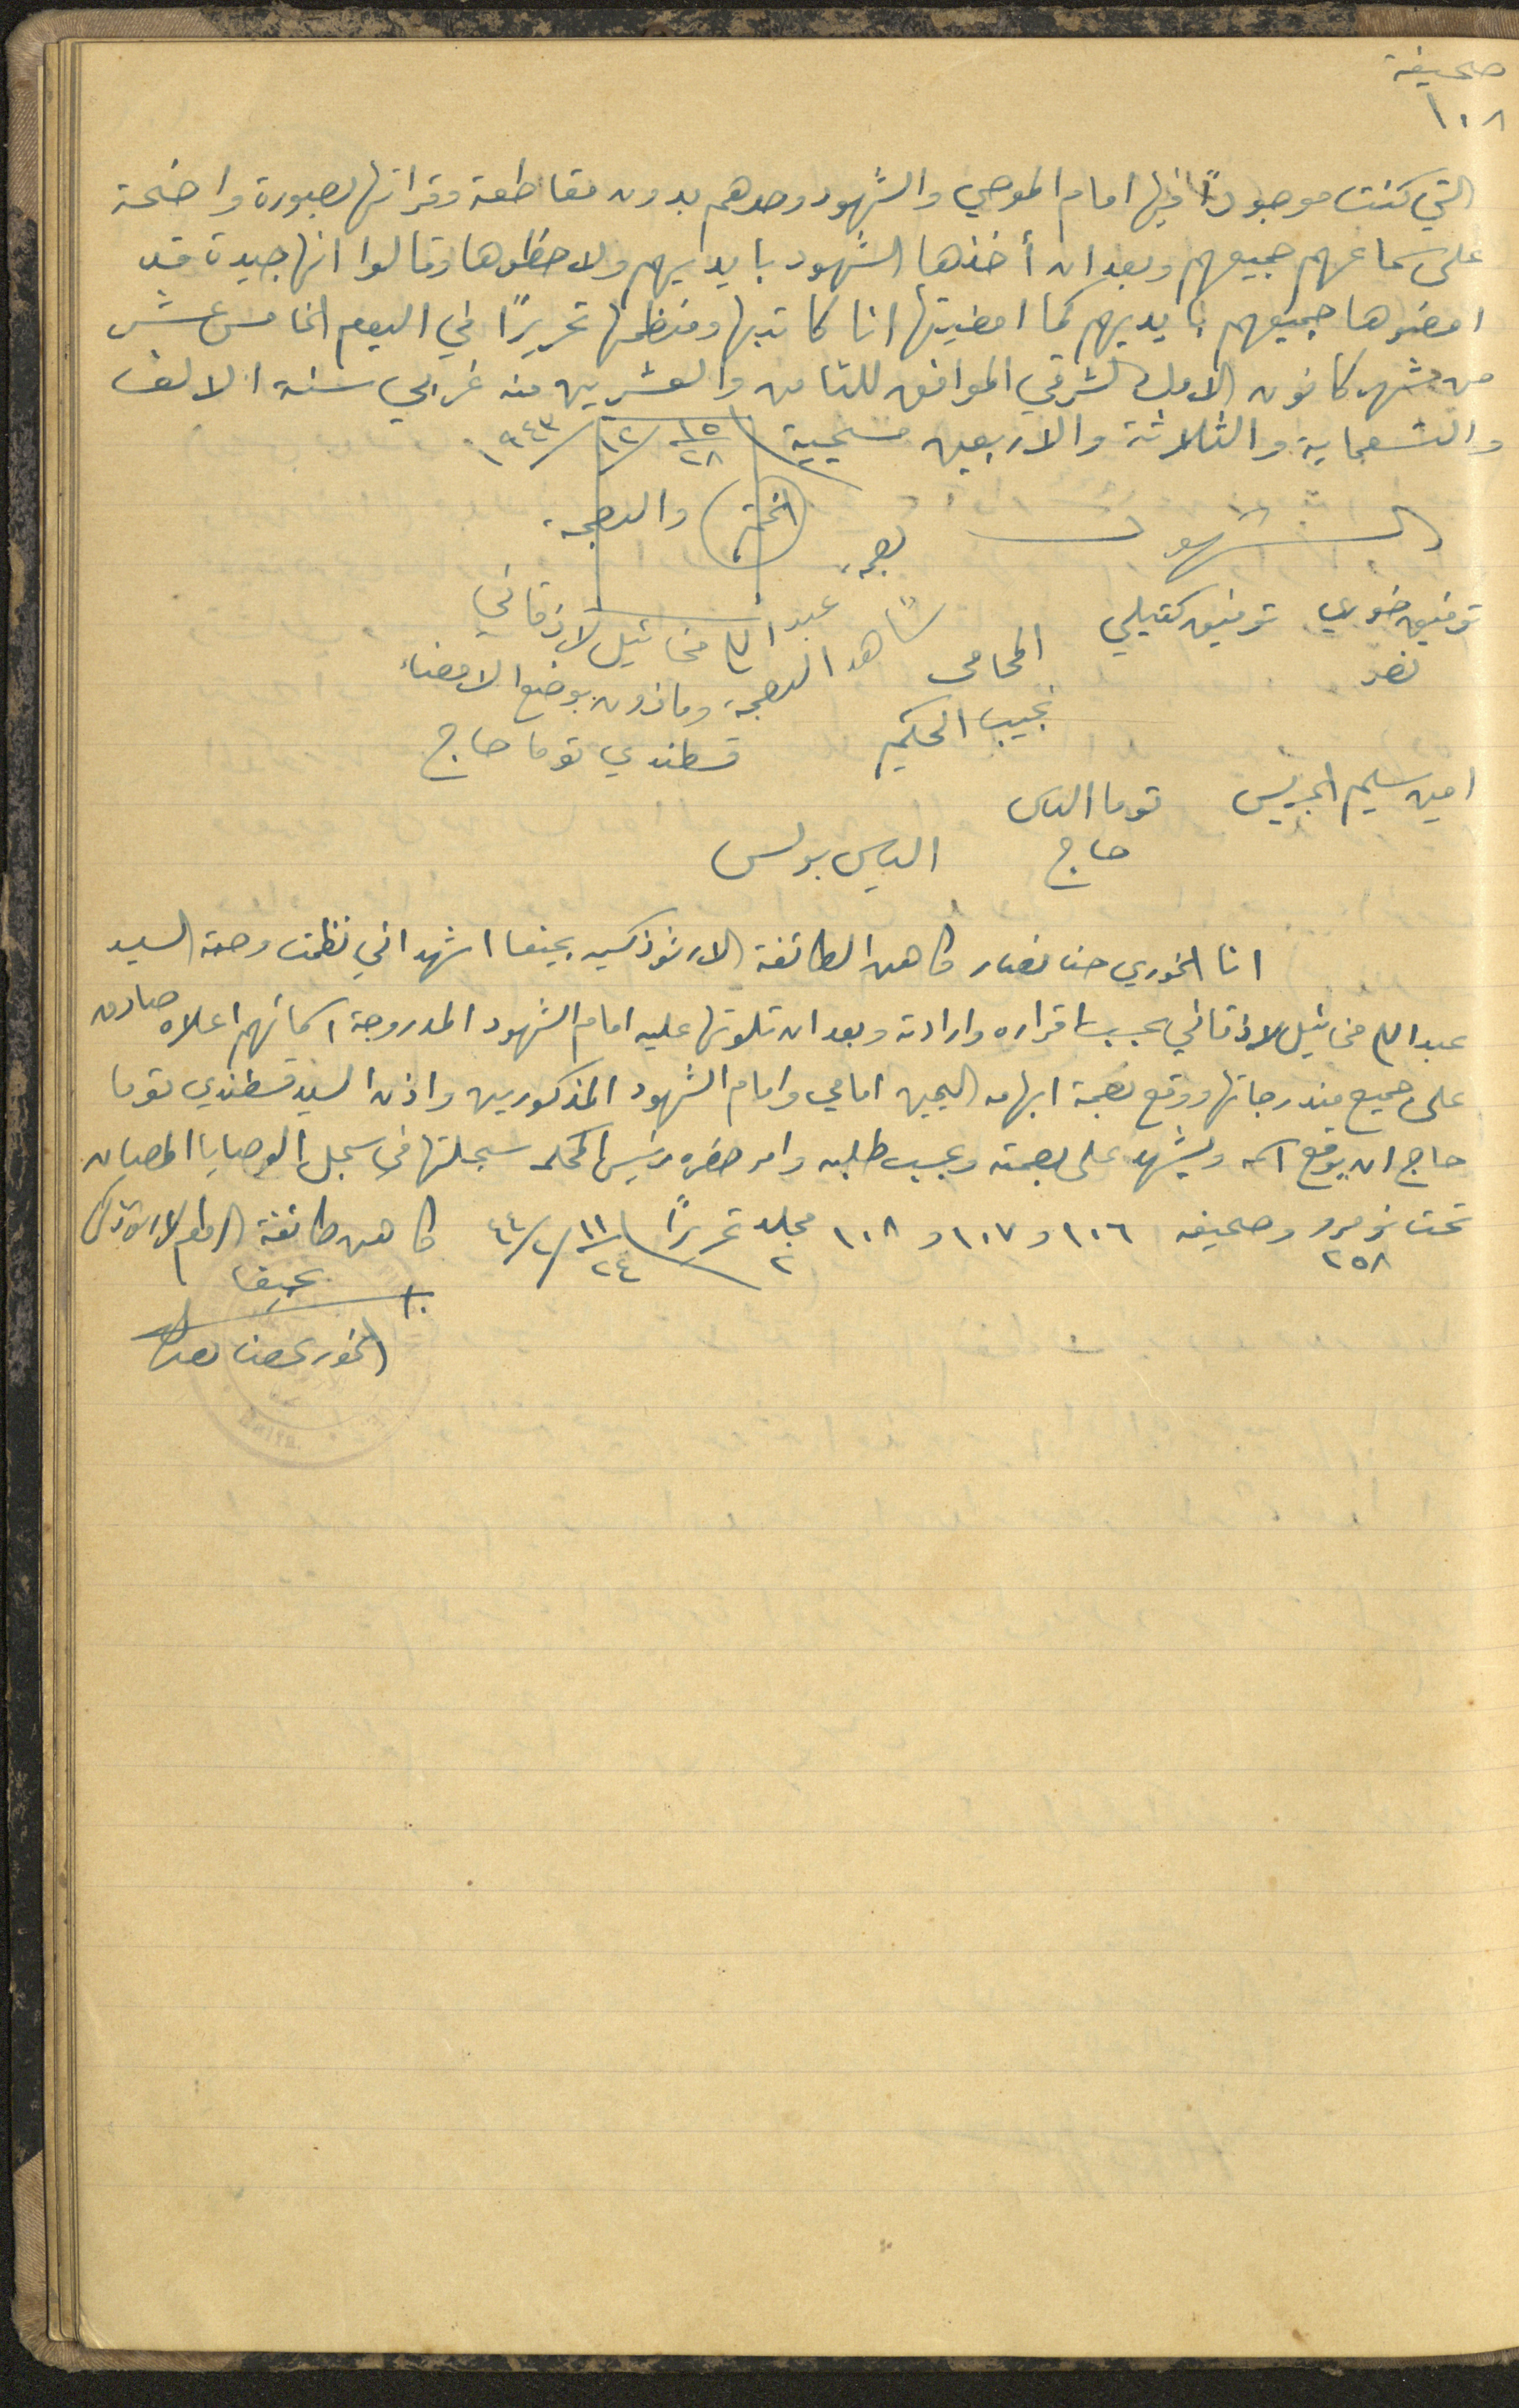 صحيفة
١٠٨
التي كنت موجوداً فيها امام الموصي والشهود وحدهم بدون مقاطعة وقراتها بصورة واضحة
على سماعهم جميعهم وبعد ان أخذها الشهود بايديهم ولاحظوها وقالوا انها جيدة قد
امضوها جميعهم بايديهم كما امضيتها انا كاتبها ومنظمها تحريراً في اليوم الخامس عشر
من شهر كانون الاول الشرقي الموافق للثامن والعشرين منه غربي سنة الالف
والتسعماية والثلاثة والاربعين مسيحية ١٥/٢٨/١٢/٩٤٣
الشهود
بصمة الختم والبصمة
توفيق خوري توفيق كتيلي
نصر
عبدالله مخائيل لاذقاني
المحامي
نجيب الحكيم
شاهد البصمة وماذون بوضع الامضاء
قسطندي توما حاج
امين سليم الجريس
توما الياس
حاج
الياس بولس
انا الخوري حنا نصار كاهن الطائفة الارثوذكسيه بحيفا اشهد اني نظمت وصية السيد
عبدالله مخائيل لاذقاني بحسب اقراره وارادته وبعد ان تلوتها عليه امام الشهود المدروجة اسمائهم اعلاه صادق
على جميع مندرجاتها ووقع بصمة ابهامه اليمين امامي وامام الشهود المذكورين واذن السيد قسطندي توما
حاج ان يوقع اسمه ويشهد على بصمته وبحسب طلبه وامر حضرة رئيس المحكمه سجلتها في سجل الوصايا المصان
تحت نومرو ٢٥٨ وصحيفه ١٠٦ و ١٠٧ و ١٠٨ مجلد ٢ تحريراً ١١/٢٤/٢/٤٤ كاهن طائفة الروم الارثوذكس
بحيفا
الخوري حنا نصار